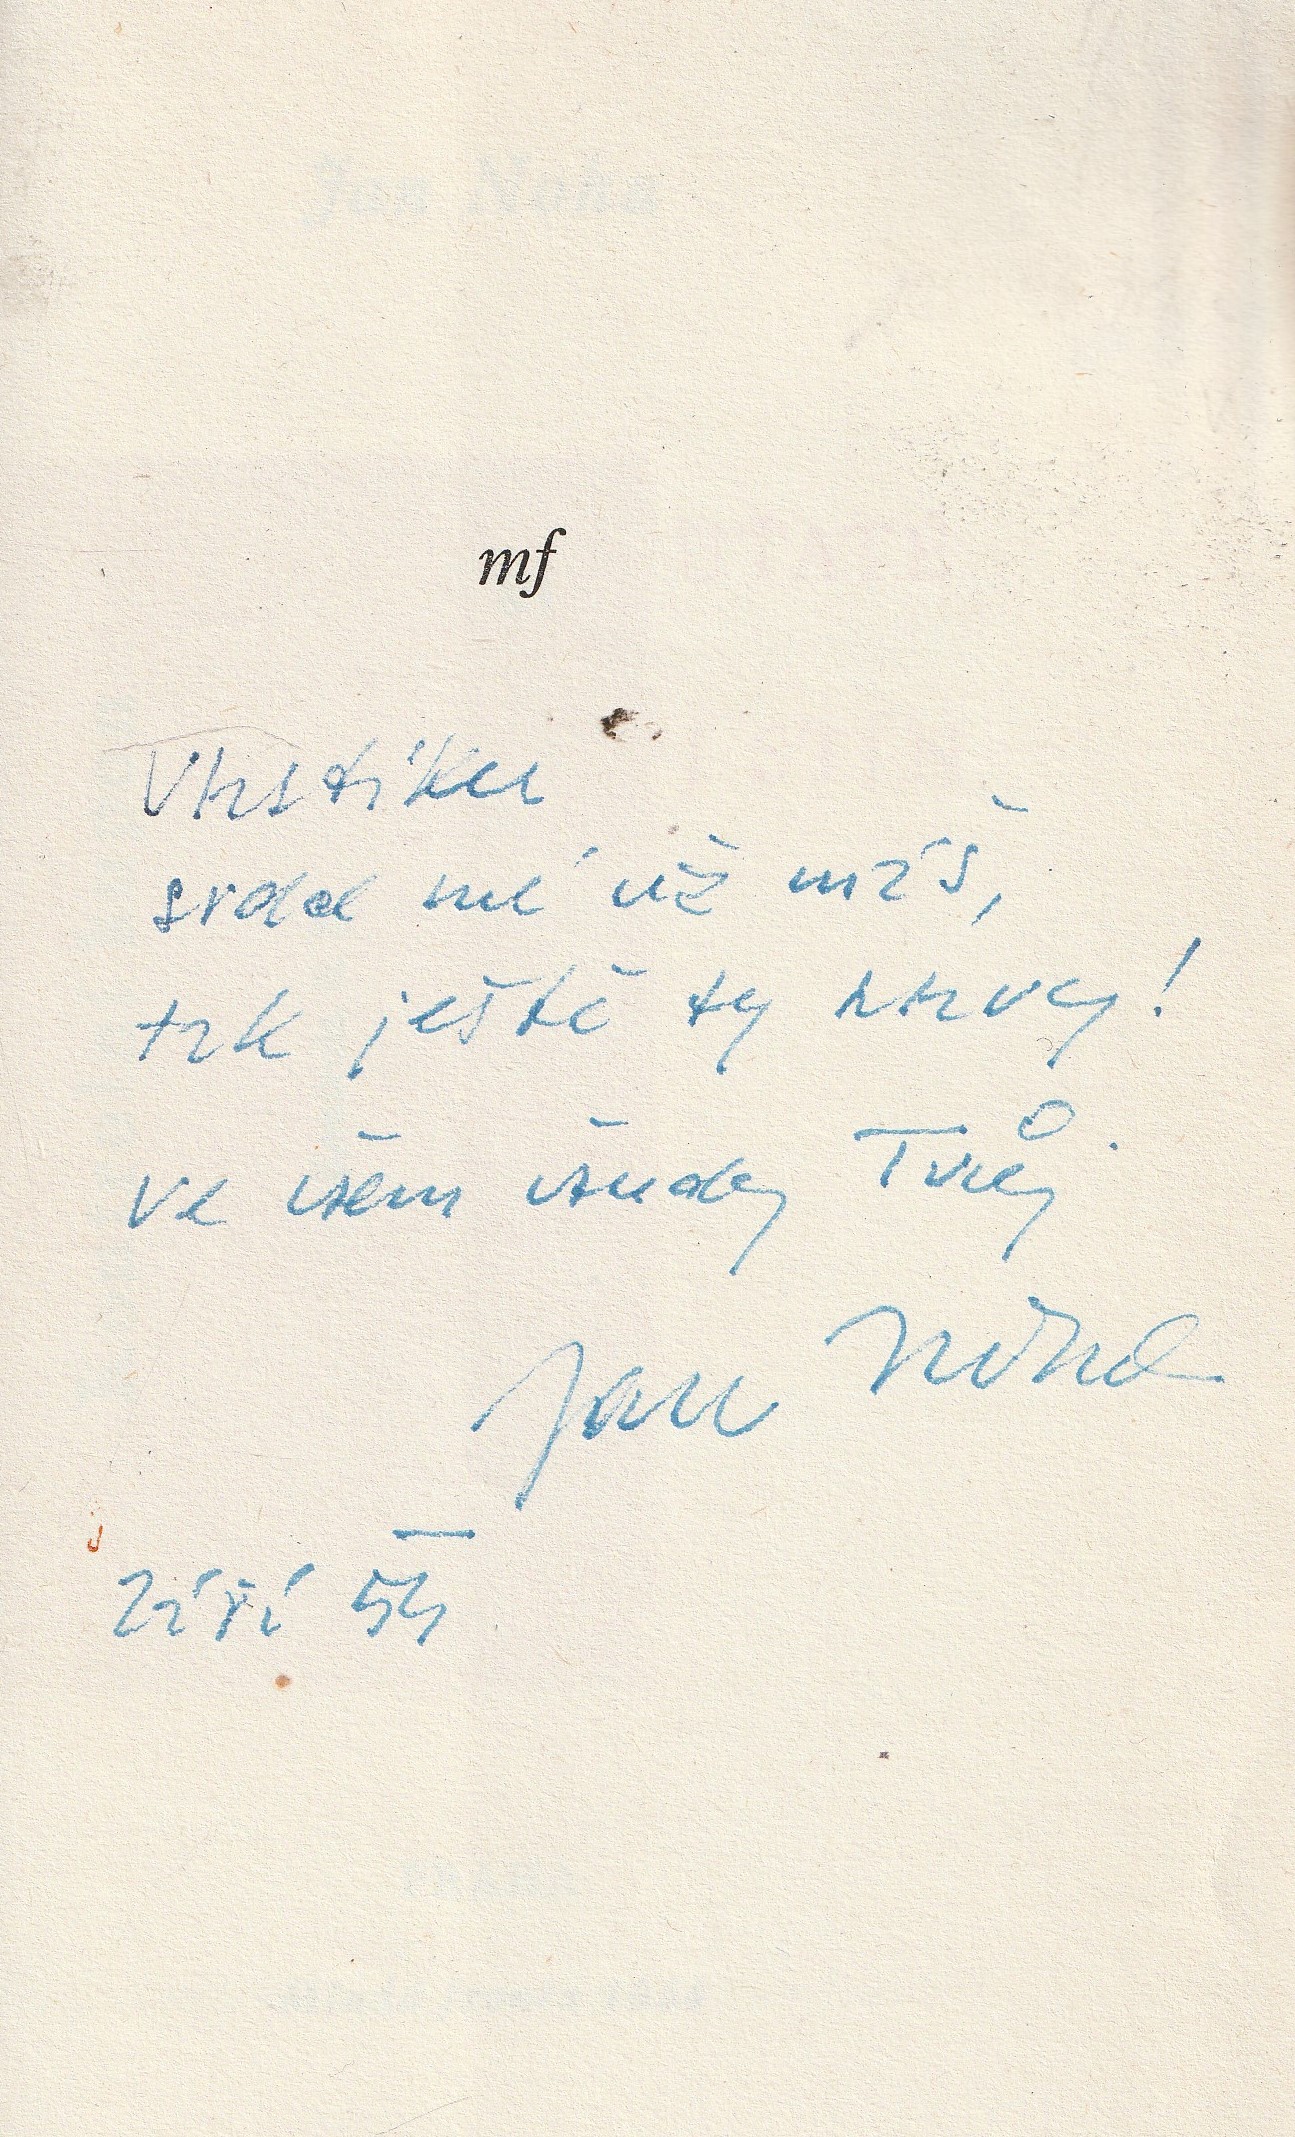 mf
Vlastíku
srdce mé už máš,
tak ještě ty !
ve všem všudy Tvůj.
Jan Noha
Září 54